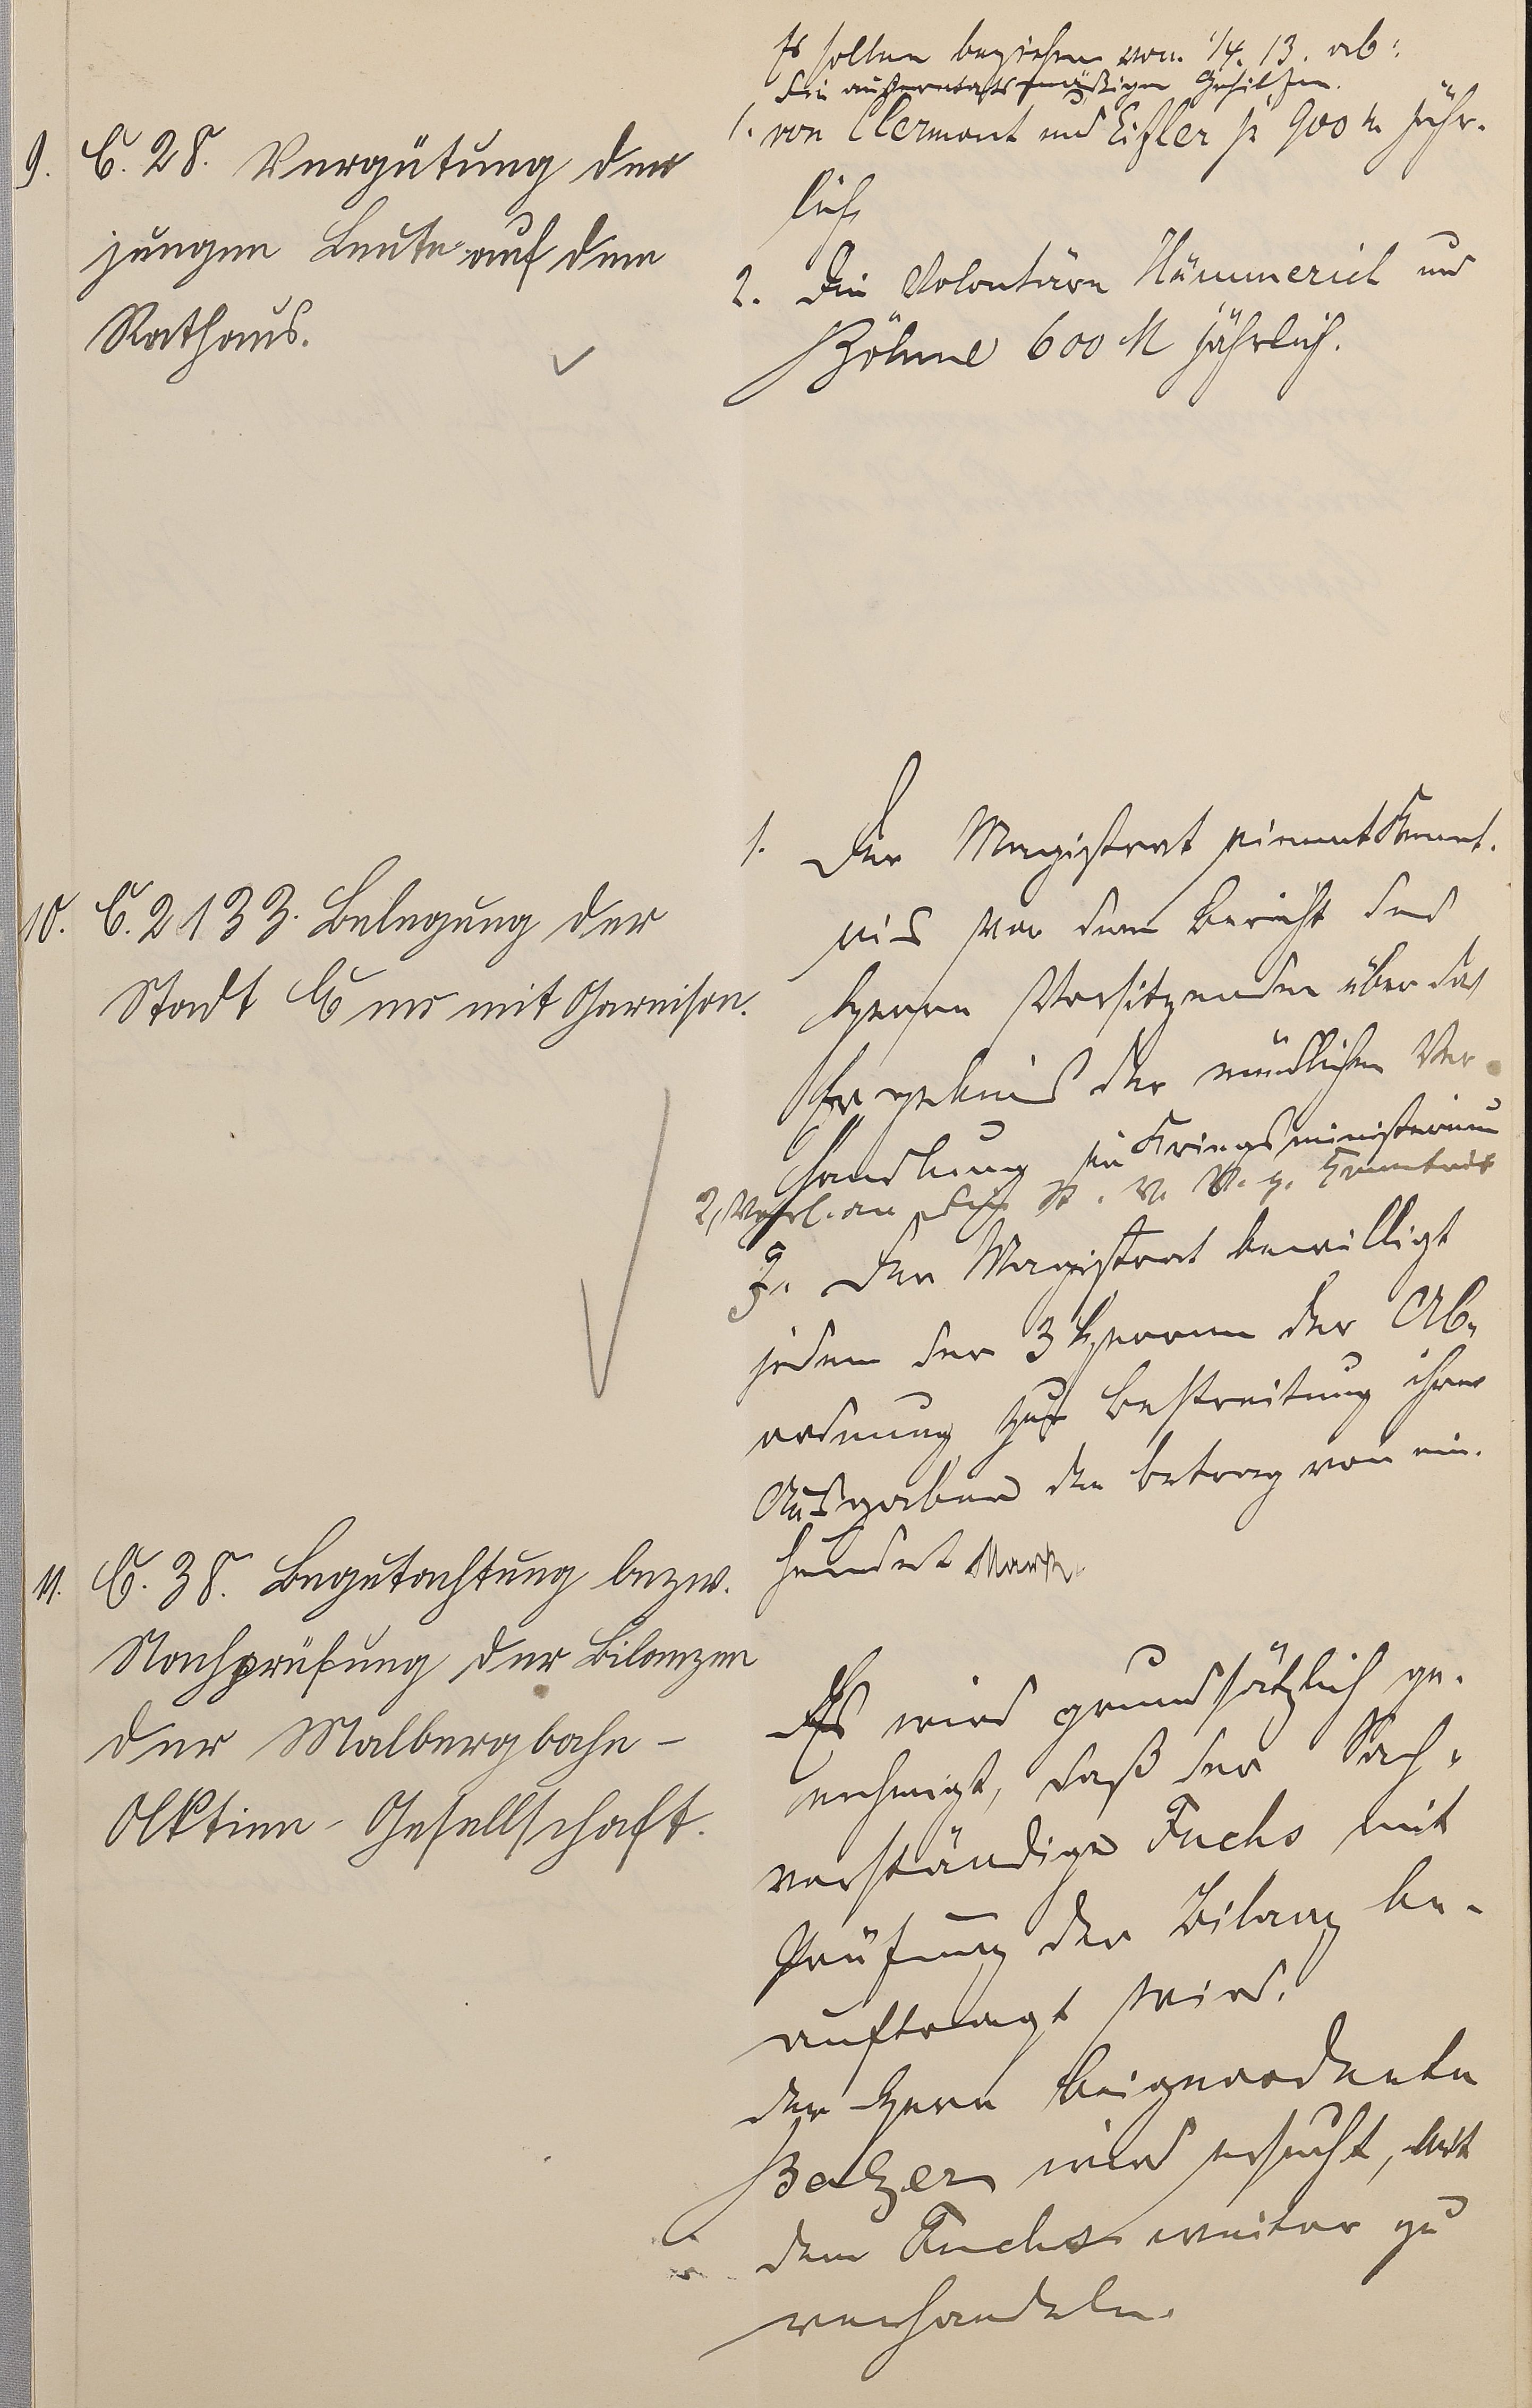 9. E. 28. Vergütung der
jungen Leute auf dem
Rathaus.
Es sollen beziehen vom 1/4. 13. ab:
die außeretatsmäßigen Gehilfen
1. von Clermont und Eißler je 900 M jähr-
lich
2. Die Volontäre Hümmerich und
Böhme 600 M jährlich.
10. E. 2133. Belegung der
Stadt Ems mit Garnison.
1. Der Magistrat nimmt Kennt-
nis von dem Bericht des
Herrn Vorsitzenden über das
Ergebnis der mündlichen Ver-
handlung im Kriegsministerium
2, Vorl. an die St. V. V. z. Kenntnis
3. Der Magistrat bewilligt
jedem der 3 Herren der Ab-
ordnung zur Bestreitung ihrer
Ausgaben den Betrag von ein-
hundert Mark.
11. E. 38. Begutachtung bezw.
Nachprüfung der Bilanzen
der Malbergbahn-
Aktien-Gesellschaft.
Es wird grundsätzlich ge-
nehmigt, daß der Sach-
verständige Fuchs mit
Prüfung der Bilanz be-
auftragt wird.
Der Herr Beigeordnete
Balzer wird ersucht, mit
dem Fuchs weiter zu
verhandeln.